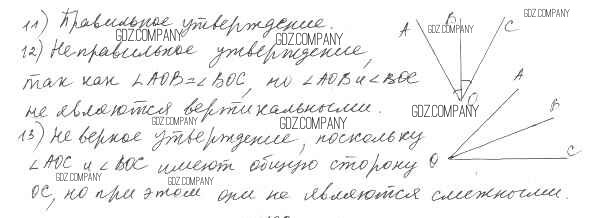 11) Правильное утверждение.
GDZ.COMPANY
GDZ.COMPANY
12) Неправильное утверждение,
GDZ.COMPANY
так как ∠AOB=∠BOC, но ∠AOB и ∠BOC
не являются вертикальными.
GDZ.COMPANY
GDZ.COMPANY
13) Неверное утверждение, поскольку
∠AOC и ∠BOC имеют общую сторону
GDZ.COMPANY
GDZ.COMPANY
OC, но при этом они не являются смежными.
A
B
C
O
GDZ.COMPANY
GDZ.COMPANY
GDZ.COMPANY
A
B
O
C